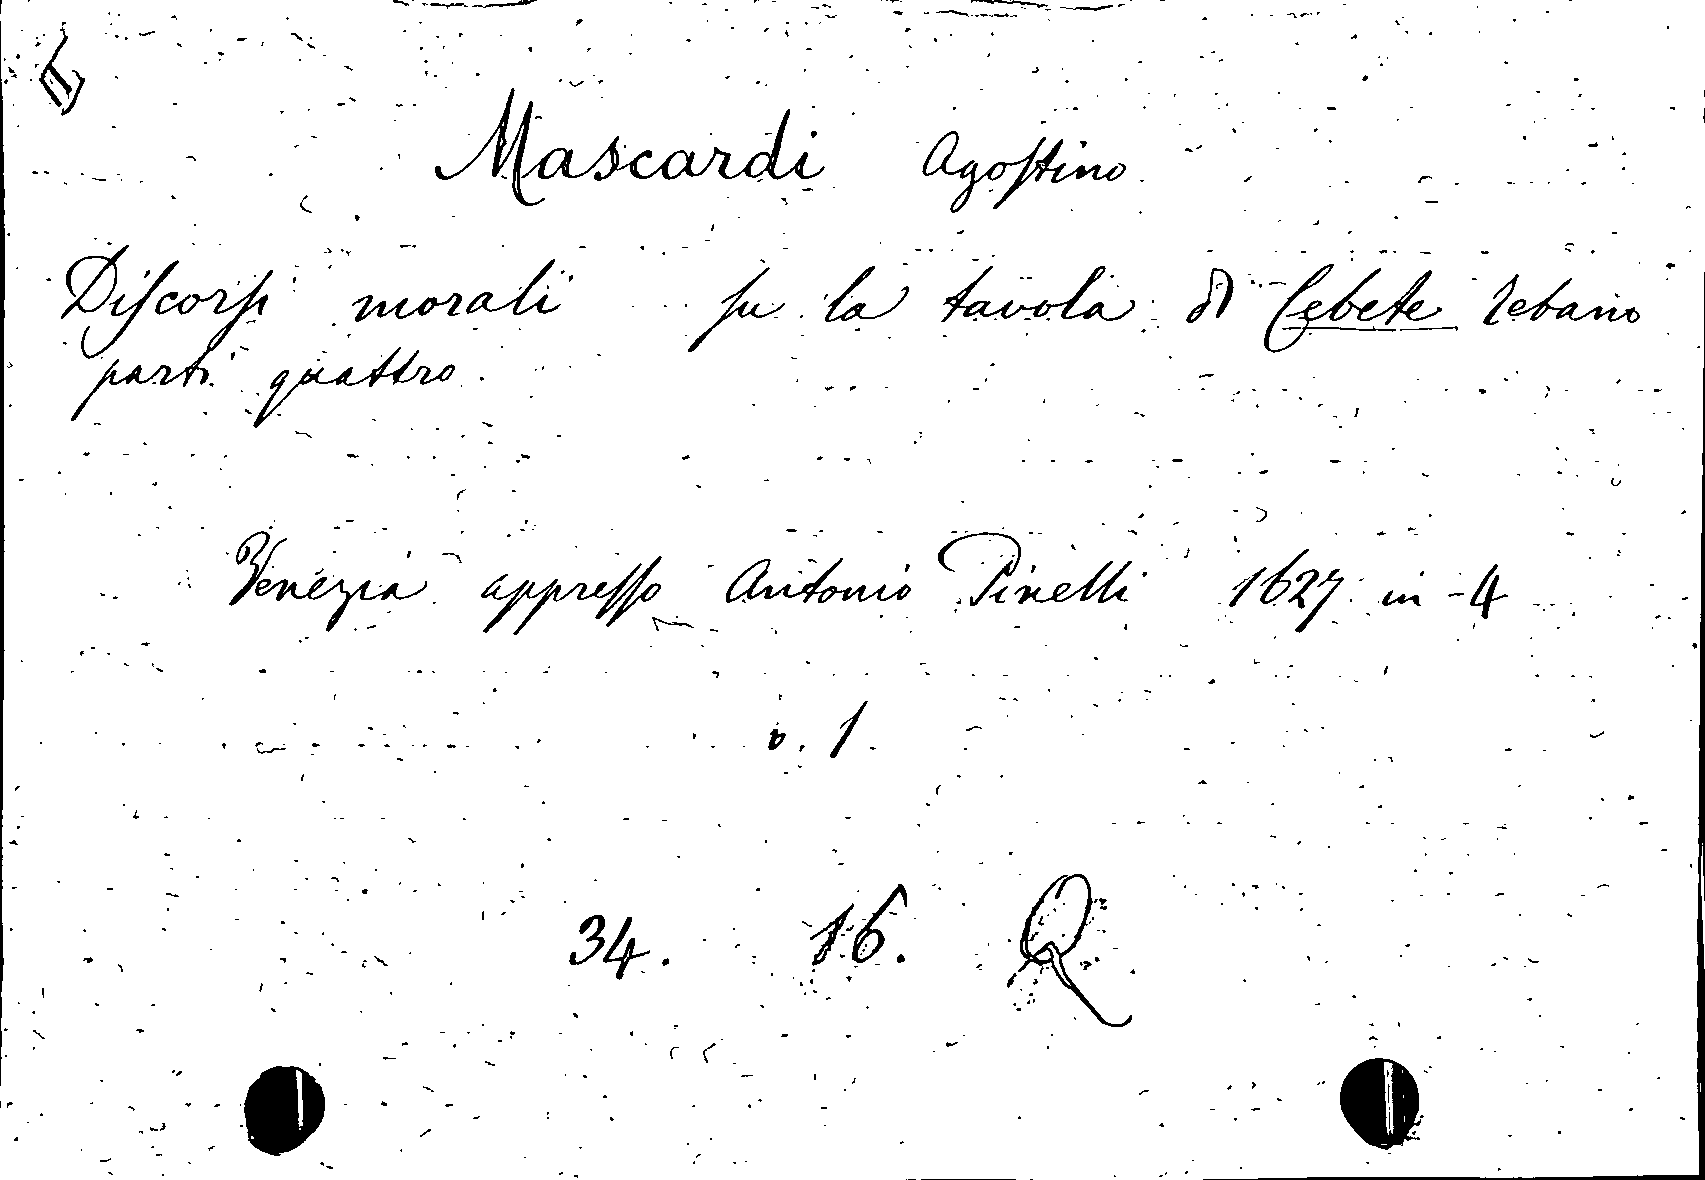 Mascardi Agostino
Discorsi morali su la tavola di Cebete Tebano
parti quattro.
Venezia appresso Antonio Pinelli 1627 in-4
v. 1.
34. 16. Q